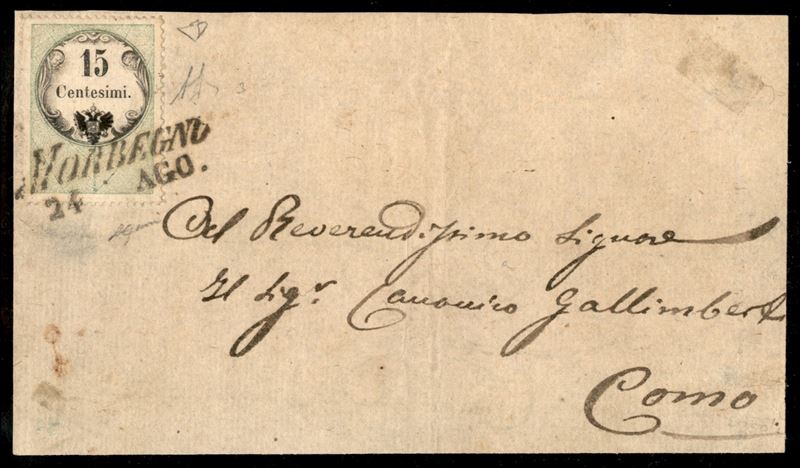 15
Centesimi.
MORBEGNO
24 AGO.
Al Reverendissimo Signore
Il Sigr. Canonico Gallimberti
Como